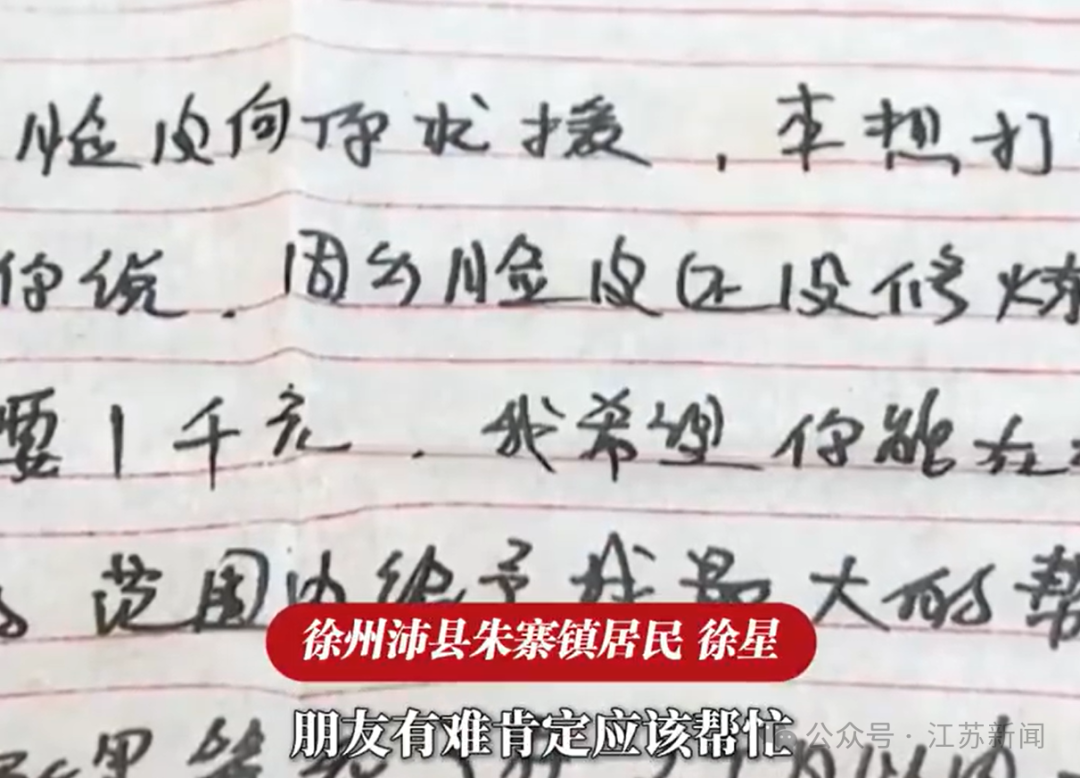 脸皮向你求援，本想打
你说．因为脸皮还没修炼
要1千元．我希望你能在
范围内给予我最大的帮
徐州沛县朱寨镇居民 徐星
朋友有难肯定应该帮忙
公众号·江苏新闻